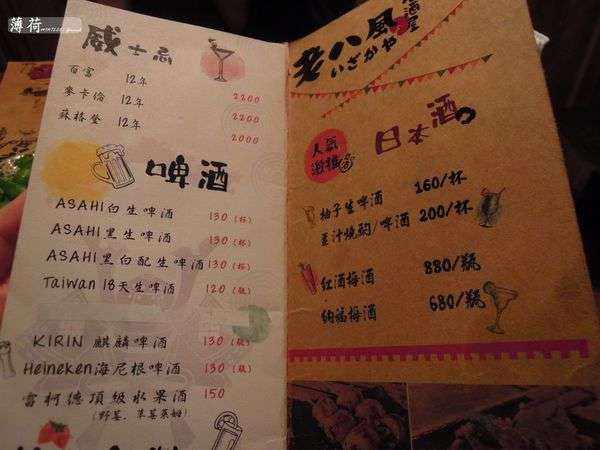 薄荷
威士忌
百富 12年 2200
麥卡倫 12年 2200
蘇格登 12年 2000
啤酒
ASAHI白生啤酒 130(杯)
ASAHI黑生啤酒 130(杯)
ASAHI黑白配生啤酒 130(杯)
Taiwan 18天生啤酒 120(瓶)
KIRIN 麒麟啤酒 130(瓶)
Heineken海尼根啤酒 130(瓶)
富柯德頂級水果酒 150
(野莓、草莓萊姆)
老八風
居酒屋
いざかや
日本酒
人氣
激推
柚子生啤酒 160/杯
薑汁燒酌/啤酒 200/杯
紅酒梅酒 880/瓶
納福梅酒 680/瓶